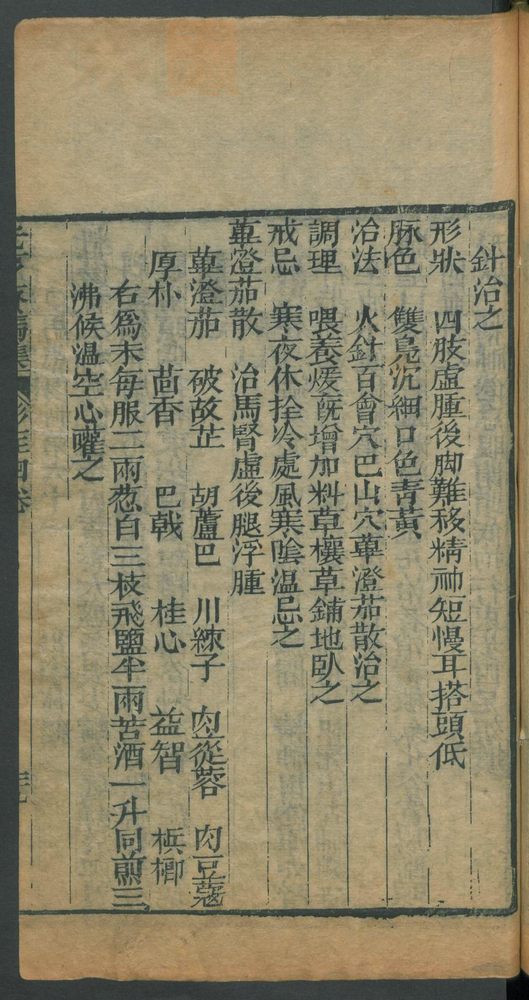 針治之
形狀　四肢虛腫後脚難移精神短慢耳搭頭低
脉色　雙鳧沉細口色青黃
治法　火針百會穴巴山穴蓽澄茄散治之
調理　喂養煖廐增加料草穰草鋪地臥之
戒忌　寒夜休拴冷處風寒陰温忌之
蓽澄茄散　治馬腎虛後腿浮腫
蓽澄茄　破故芷　胡蘆巴　川練子　肉蓯蓉　肉豆蔻
厚朴　茴香　巴戟　桂心　益智　檳榔
右為末每服二兩葱白三枝飛鹽半兩苦酒一升同煎三
沸候温空心灌之